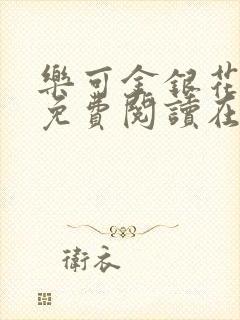 樂可金銀花
免費閱讀在
衛衣